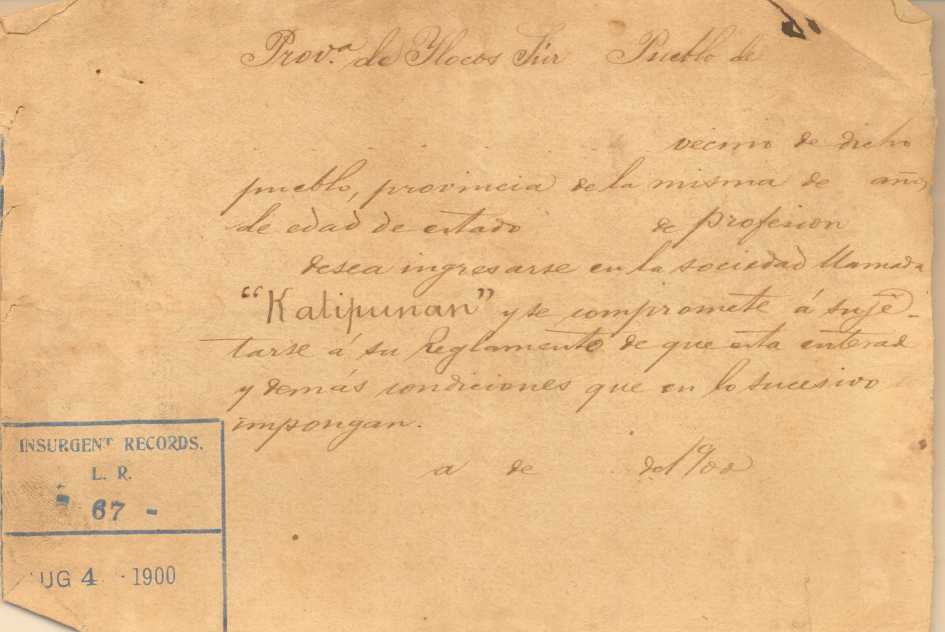 Prov.ª de Ylocos Sur Pueblo de
vecino de dicho
pueblo, provincia de la misma de años
de edad de estado de profesion
desea ingresarse en la sociedad llamada
“Katipunan” y se compromete á suje-
tarse á su Reglamento de que esta enterad
y demás condiciones que en lo sucesivo
impongan.
a de de 1900
INSURGENT RECORDS.
L. R.
67 -
AUG 4 1900